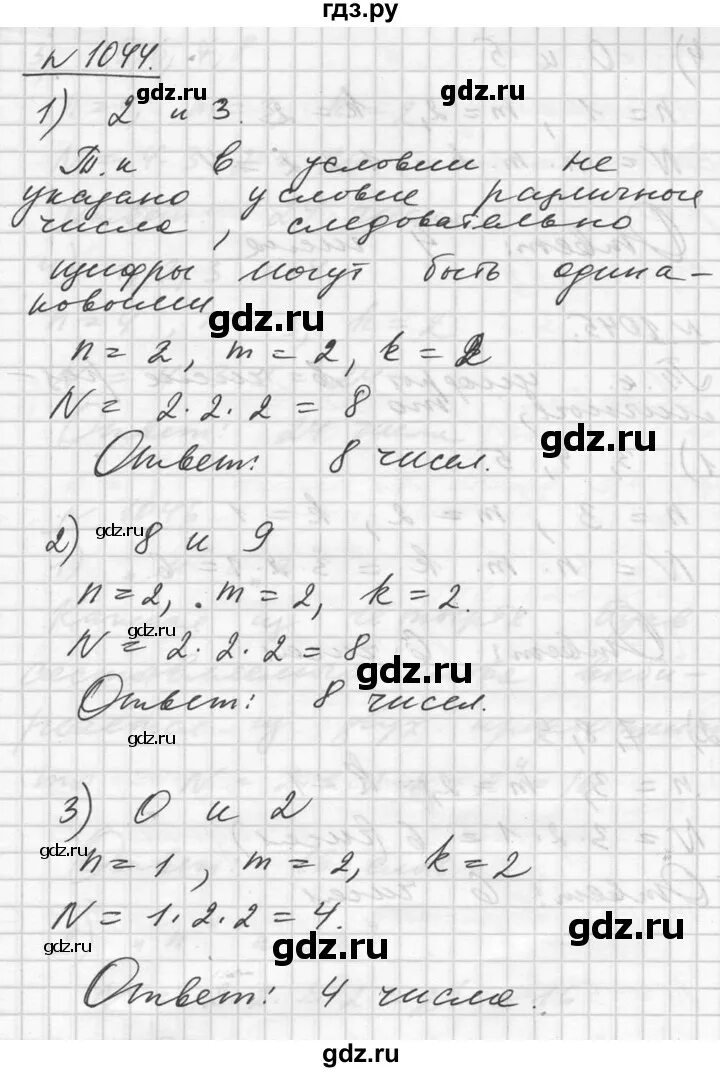 гдз.ру
N 1044.
gdz.ru gdz.ru
1) 2 и 3.
Т.к в условии не
указано условие различные
числа, следовательно
цифры могут быть одина-
ковыми
gdz.ru
n = 2, m = 2, k = 2
N = 2·2·2 = 8
gdz.ru
Ответ: 8 чисел.
gdz.ru
2) 8 и 9
gdz.ru
n = 2, m = 2, k = 2.
gdz.ru
N = 2·2·2 = 8
gdz.ru
Ответ: 8 чисел.
gdz.ru
3) 0 и 2
gdz.ru
n = 1, m = 2, k = 2
N = 1·2·2 = 4.
gdz.ru
gdz.ru
Ответ: 4 числа.
gdz.ru
gdz.ru